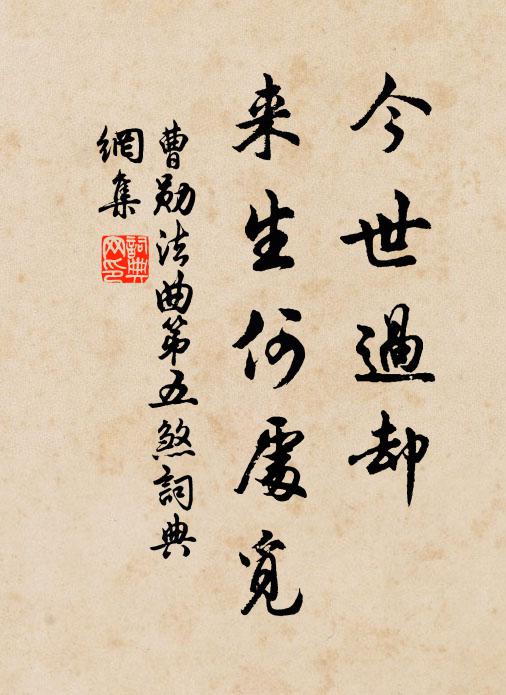 今世過却
来生何處覓
曹勛法曲第五煞詞典
網集
詞典
网印